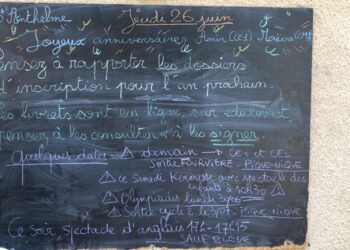 St Anthelme Jeudi 26 juin
Joyeux anniversaires Amir (CE1) Maëva (CM1)
ensez à rapporter les dossiers
d'inscription pour l'an prochain.
es livrets sont en ligne, sur educonnect,
pensez à les consulter à les signer.
Quelques dates ⚠ demain → CE1 et CE2
Sortie PIQUE-NIQUE
⚠ ce samedi Kermesse avec spectacle des
enfants à 10h30 ⚠
⚠ Olympiades lundi 30/06
⚠ Sortie cycle 2 le 3/07. PIQUE-NIQUE
Ce soir spectacle d'anglais 17h-17h15
SALLE